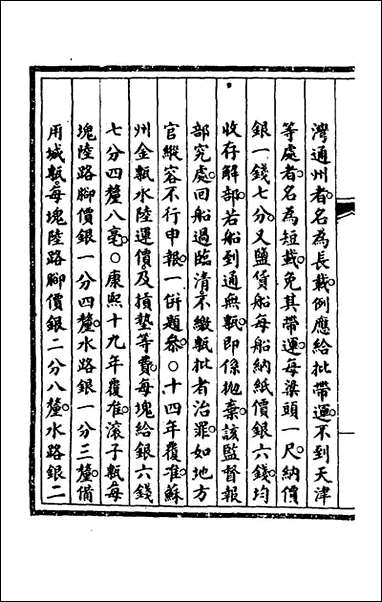 灣通州者名為長載例應給批帶運不到天津
等處者名為短載免其帶運每梁頭一尺納價
銀一錢七分又鹽貨船每船納紙價銀六錢均
收存解部若船到通無甎即係拋棄該監督報
部究處回船過臨清不繳甎批者治罪如地方
官縱容不行申報一併題參○十四年覆准蘇
州金甎水陸運價及損墊等費每塊給銀六錢
七分四釐八毫○康熙十九年覆准滾子甎每
塊陸路腳價銀一分四釐水路銀一分三釐備
用城甎每塊陸路腳價銀二分八釐水路銀二